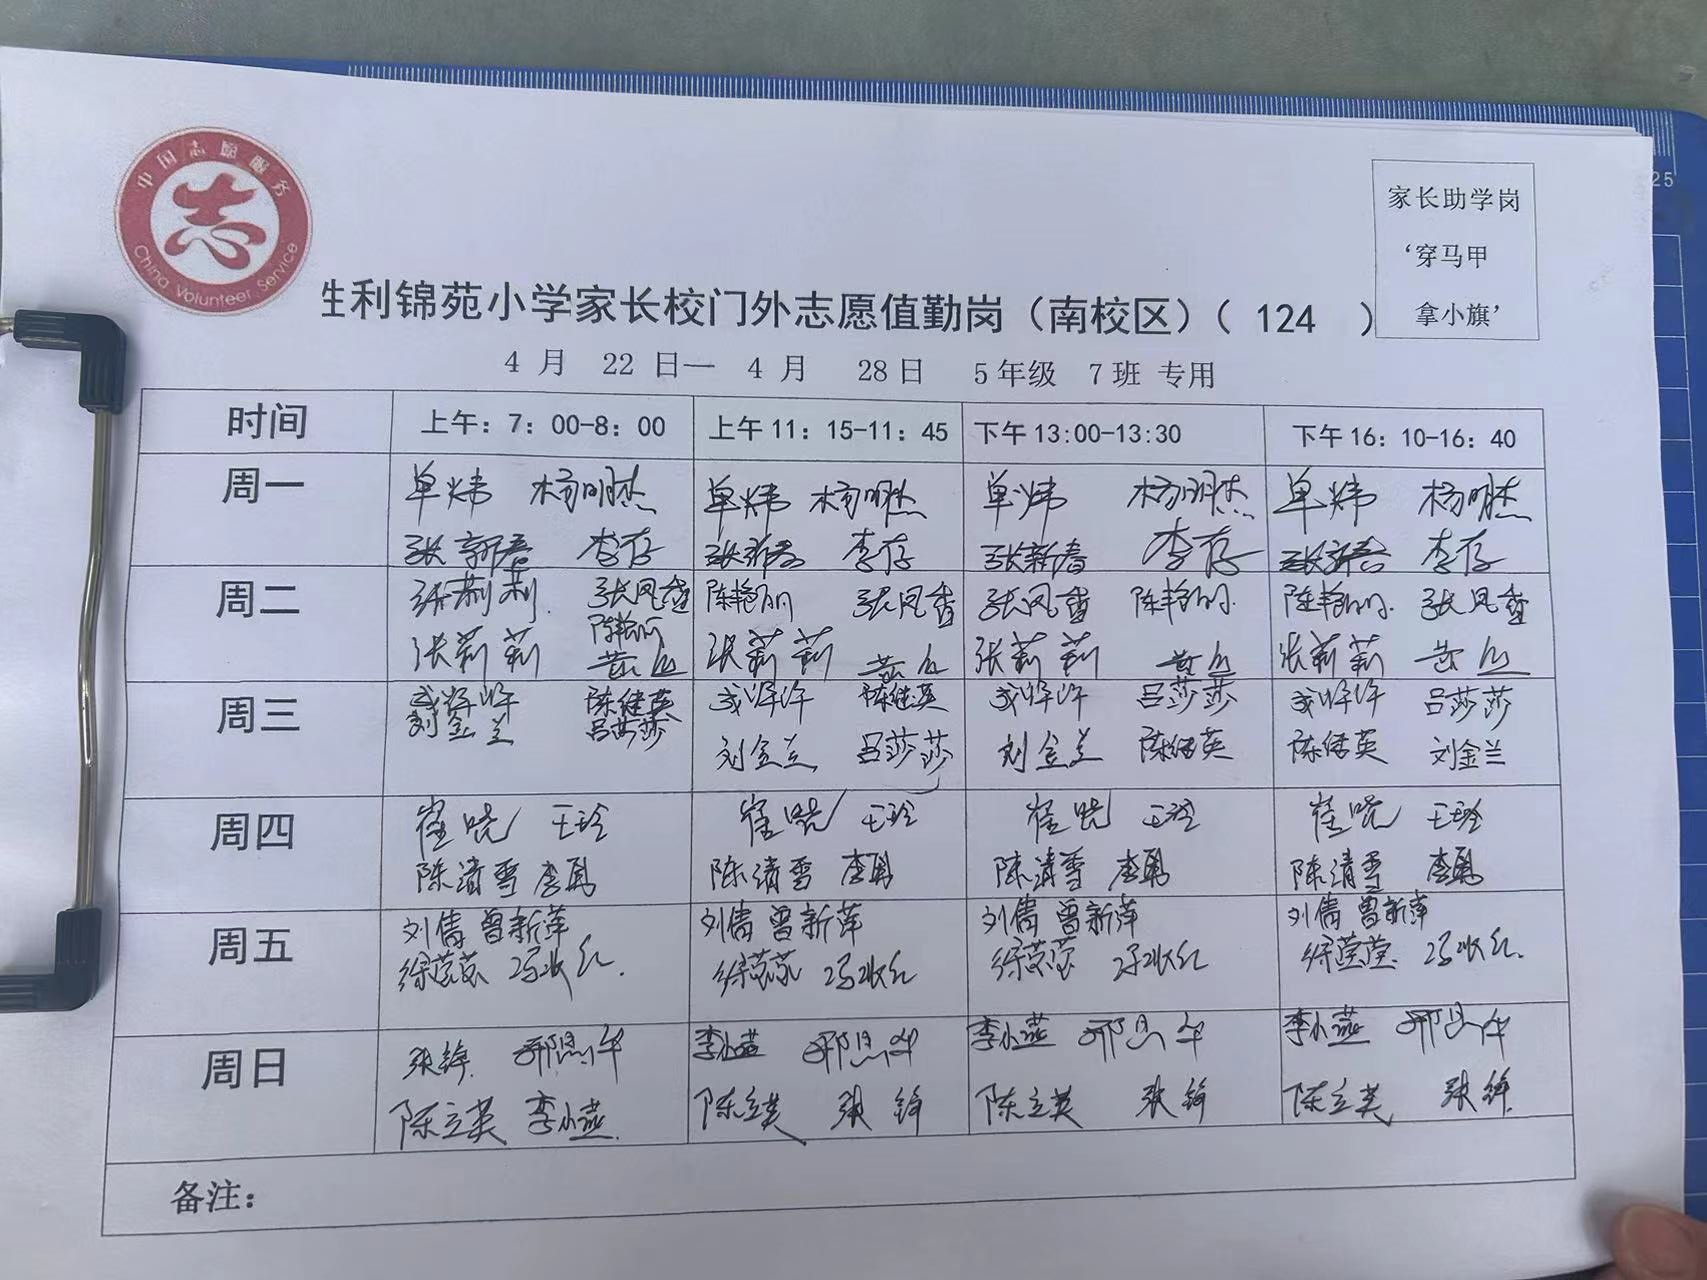 中国志愿服务
志
China Volunteer Service
家长助学岗
‘穿马甲
拿小旗’
胜利锦苑小学家长校门外志愿值勤岗（南校区）（ 124 ）
4 月 22 日— 4 月 28日 5年级 7班 专用
时间 上午：7：00-8：00 上午11：15-11：45 下午13:00-13:30 下午16：10-16：40
周一 单炜 杨明杰 单炜 杨明杰 单炜 杨明杰 单炜 杨明杰
张新春 李存 张新春 李存 张新春 李存 张新春 李存
周二 张凤香 陈艳丽 张凤香 张凤香 陈艳丽 陈艳丽 张凤香
陈艳丽
张莉莉 张莉莉 张莉莉 张莉莉
周三 陈继英 陈继英 吕莎莎 吕莎莎
刘金兰 吕莎莎 刘金兰 吕莎莎 刘金兰 陈继英 陈继英 刘金兰
周四 崔晓 王玲 崔晓 王玲 崔晓 王玲 崔晓 王玲
陈清雪 李凤 陈清雪 李凤 陈清雪 李凤 陈清雪 李凤
周五 刘倩 曾新萍 刘倩 曾新萍 刘倩 曾新萍 刘倩 曾新萍
徐莹莹 冯收红 徐莹莹 冯收红 徐莹莹 冯收红 徐莹莹 冯收红
周日 张锋 李小燕 李小燕 李小燕
陈立英 李小燕 陈立英 张锋 陈立英 张锋 陈立英 张锋
备注：